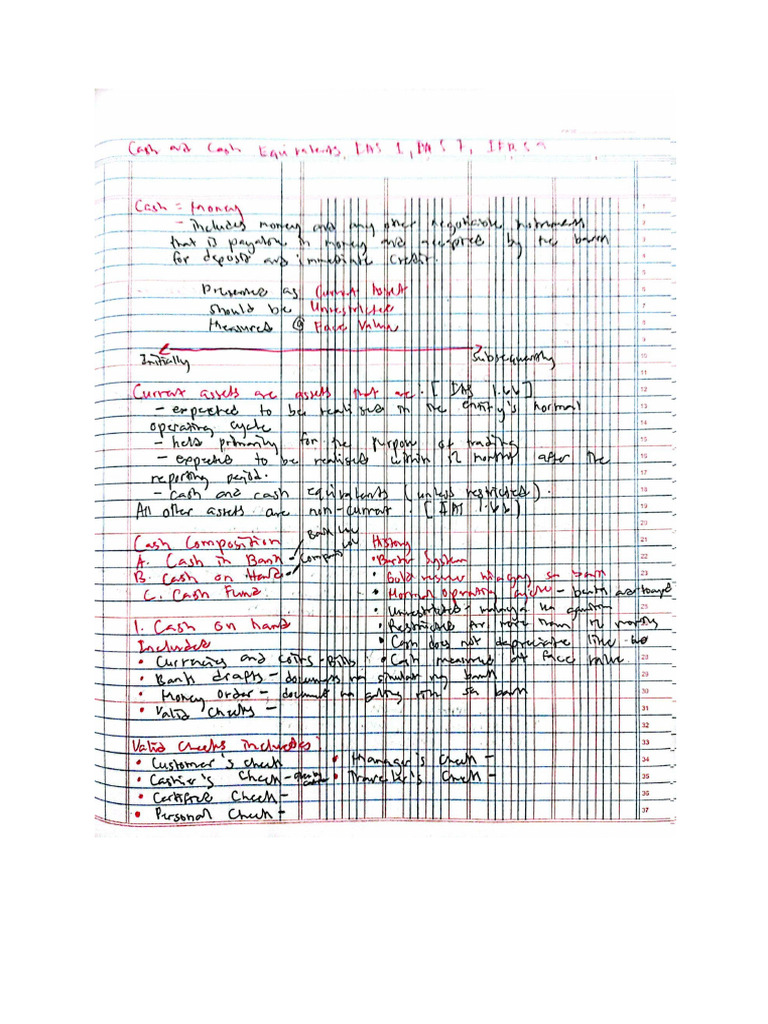 Cash and Cash Equivalents, IAS 1, IAS 7, IFRS 9
Cash = Money
- includes money and any other negotiable instrument
that is payable in money and accepted by the bank
for deposit and immediate credit.
Presented as Current Asset
Should be Unrestricted
Measured @ Face Value
Initially
Subsequently
Current assets are assets that are: [IAS 1.66]
- expected to be realised in the entity's normal
operating cycle
- held primarily for the purpose of trading
- expected to be realised within 12 months after the
reporting period.
- cash and cash equivalents (unless restricted).
All other assets are non-current. [IAS 1.66]
Cash Composition
A. Cash in Bank
B. Cash on Hand
C. Cash Fund
1. Cash on hand
Includes
• Currencies and coins - Bills
• Bank drafts - document na sa bank
• Money Order - document na galing rin sa bank
• Valid Checks -
History
• Barter System
• Gold reserve sa bank
• Normal Operating cycle -
• Unrestricted -
• Restricted for more than 12 months
• Cash does not depreciate like
• Cash measured at face value
Valid Checks includes:
• Customer's check
• Cashier's Check -
• Certified Check -
• Personal Check -
• Manager's Check -
• Traveler's Check -
1
2
3
4
5
6
7
8
9
10
11
12
13
14
15
16
17
18
19
20
21
22
23
25
28
29
30
31
32
33
34
35
36
37